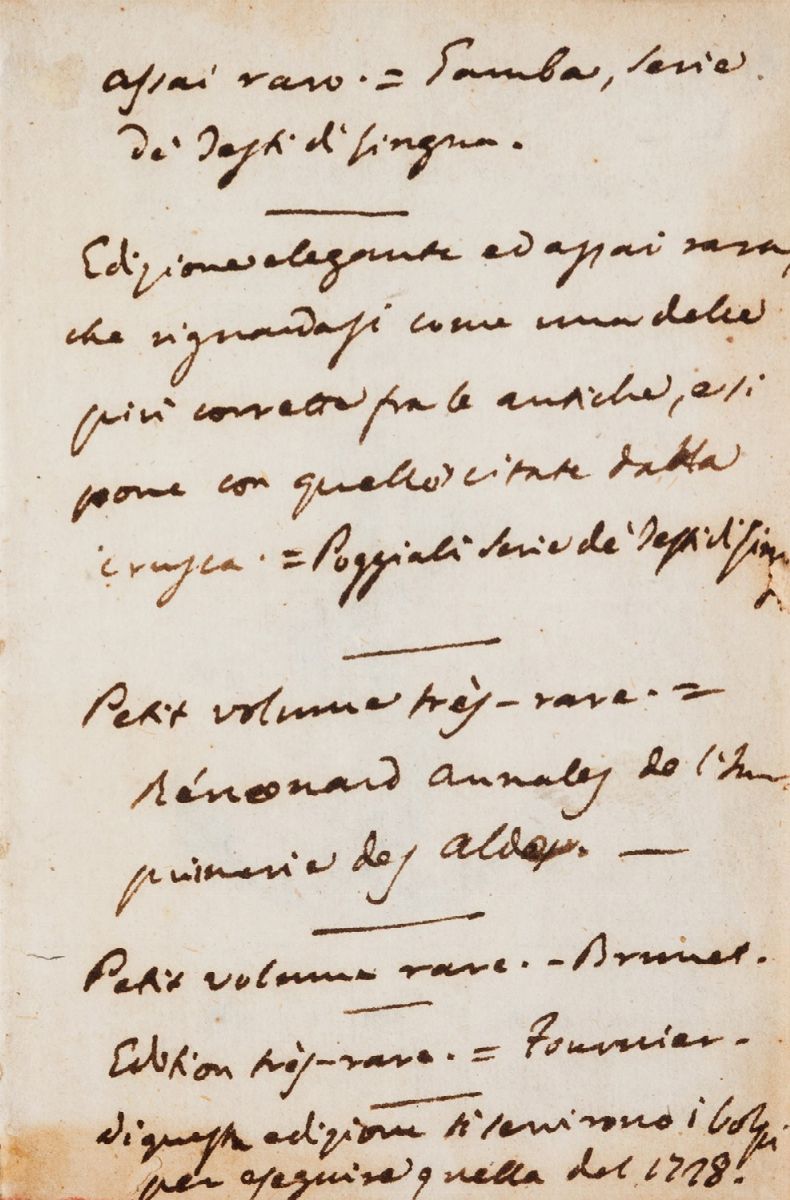 assai raro. = Gamba, serie
de' Testi di lingua.
Edizione elegante ed assai rara,
che riguardasi come una delle
più corrette fra le antiche, e si
pone con quelle citate dalla
crusca. = Poggiali serie de' Testi di lin
g.
Petit volume très-rare. =
Rénouard Annales de l'Im
primerie des Aldes. —
Petit volume rare. - Brunet.
Edition très-rare. = Fournier -
di questa edizione si servirono i Volpi
per eseguire quella del 1728.